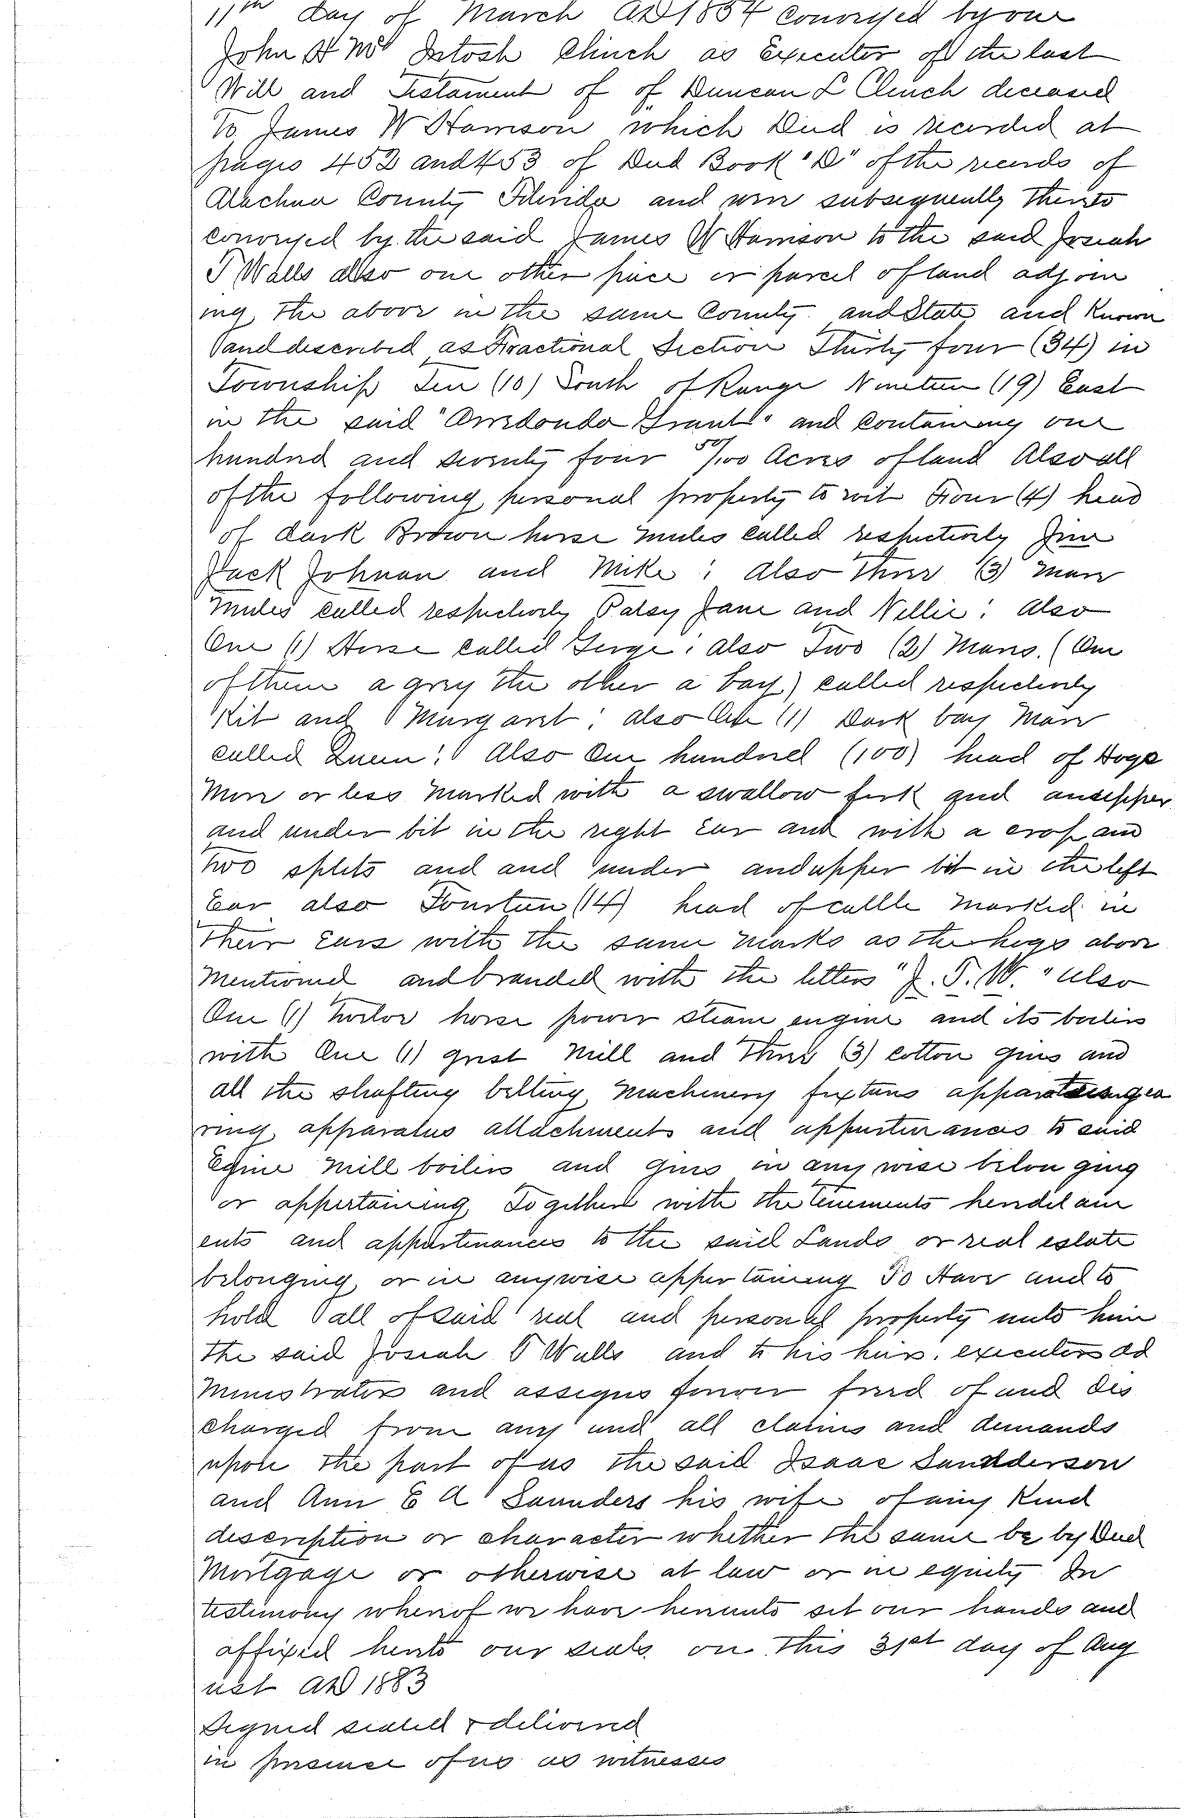 11th day of March AD 1854 conveyed by one
John H Mc Intosh Clinch as Executor of the last
Will and Testament of of Duncan L Clinch deceased
To James W Harrison which Deed is recorded at
pages 452 and 453 of Deed Book "D" of the records of
Alachua County Florida and were subsequently thereto
conveyed by the said James W Harrison to the said Josiah
T Walls also one other piece or parcel of land adjoin
ing the above in the same County and State and Known
and described as Fractional Section Thirty four (34) in
Township Ten (10) South of Range Nineteen (19) East
in the said "Arredondo Grant" and containing one
hundred and seventy four 50/100 Acres of land Also all
of the following personal property to wit Four (4) head
of dark Brown horse mules called respectively Jim
Jack Johnan and Mike ; also Three (3) mare
mules called respectively Patsy Jane and Nellie : also
One (1) Horse called Gorge : also Two (2) Mares. (One
of them a grey the other a bay) called respectively
Kit and Margaret : also One (1) Dark bay Mare
called Queen : Also One hundred (100) head of Hogs
more or less marked with a swallow fork and an upper
and under bit in the right Ear and with a crop and
two splits and and under and upper bit in the left
Ear also Fourteen (14) head of cattle marked in
their Ears with the same marks as the hogs above
mentioned and branded with the letters "J. T. W." also
One (1) twelve horse power steam engine and its boilers
with One (1) grist Mill and Three (3) cotton gins and
all the shafting belting Machinery fixtures gea
ring apparatus attachments and appurtenances to said
Egine Mill boilers and gins in any wise belonging
or appertaining Together with the tenements heredetam
ents and appurtenances to the said Lands or real estate
belonging or in anywise appertaining To Have and to
hold all of said real and personal property unto him
the said Josiah T Walls and to his heirs, executors ad
ministrators and assigns forever freed of and dis
charged from any and all claims and demands
upon the part of us the said Isaac Sanderson
and Ann E A Saunders his wife of any Kind
description or character whether the same be by Deed
Mortgage or otherwise at law or in equity In
testimony whereof we have hereunto set our hands and
affixed hereto our seals on this 31st day of Aug
ust AD 1883
Signed sealed & delivered
in presence of us as witnesses